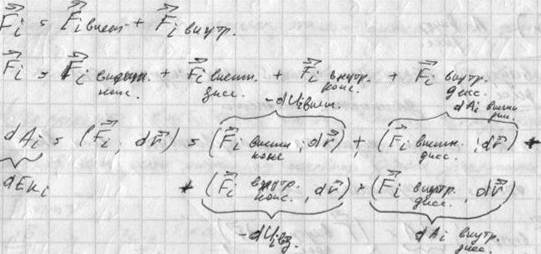 F⃗i = F⃗i внеш + F⃗i внутр.
F⃗i = F⃗i внешн. конс. + F⃗i внешн. дисс. + F⃗i внутр. конс. + F⃗i внутр. дисс.
-dUi внеш. dAi внешн дис.
dAi = (F⃗i, dr⃗) = (F⃗i внешн конс, dr⃗) + (F⃗i внешн. дисс., dr⃗) +
dEкi + (F⃗i внутр. конс., dr⃗) + (F⃗i внутр. дисс., dr⃗)
-dUi вз. dAi внутр. дисс.